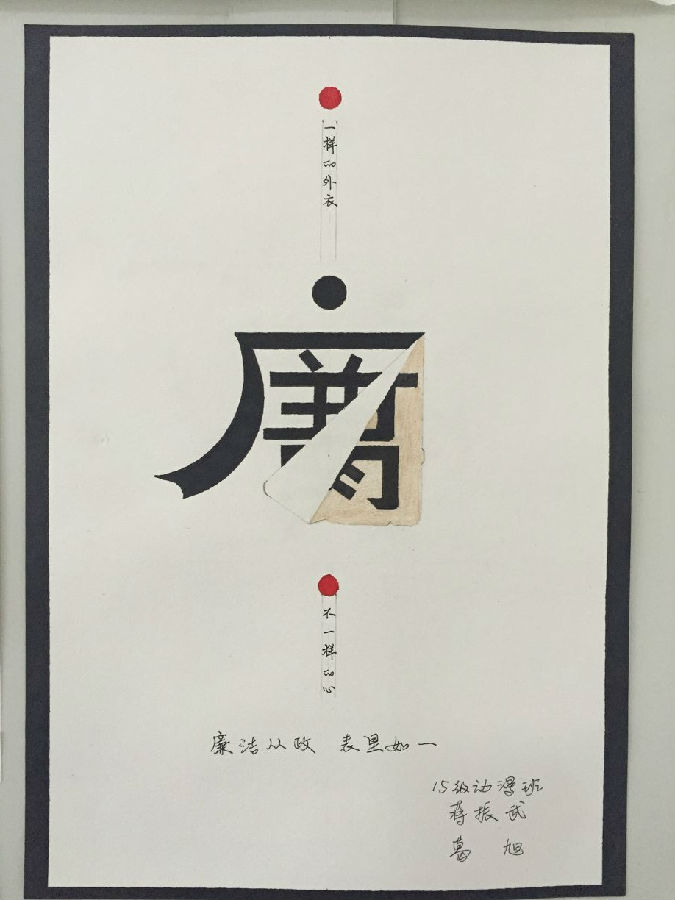 一样的外衣
不一样的心
廉洁从政 表里如一
15级动漫班
蒋振武
葛旭